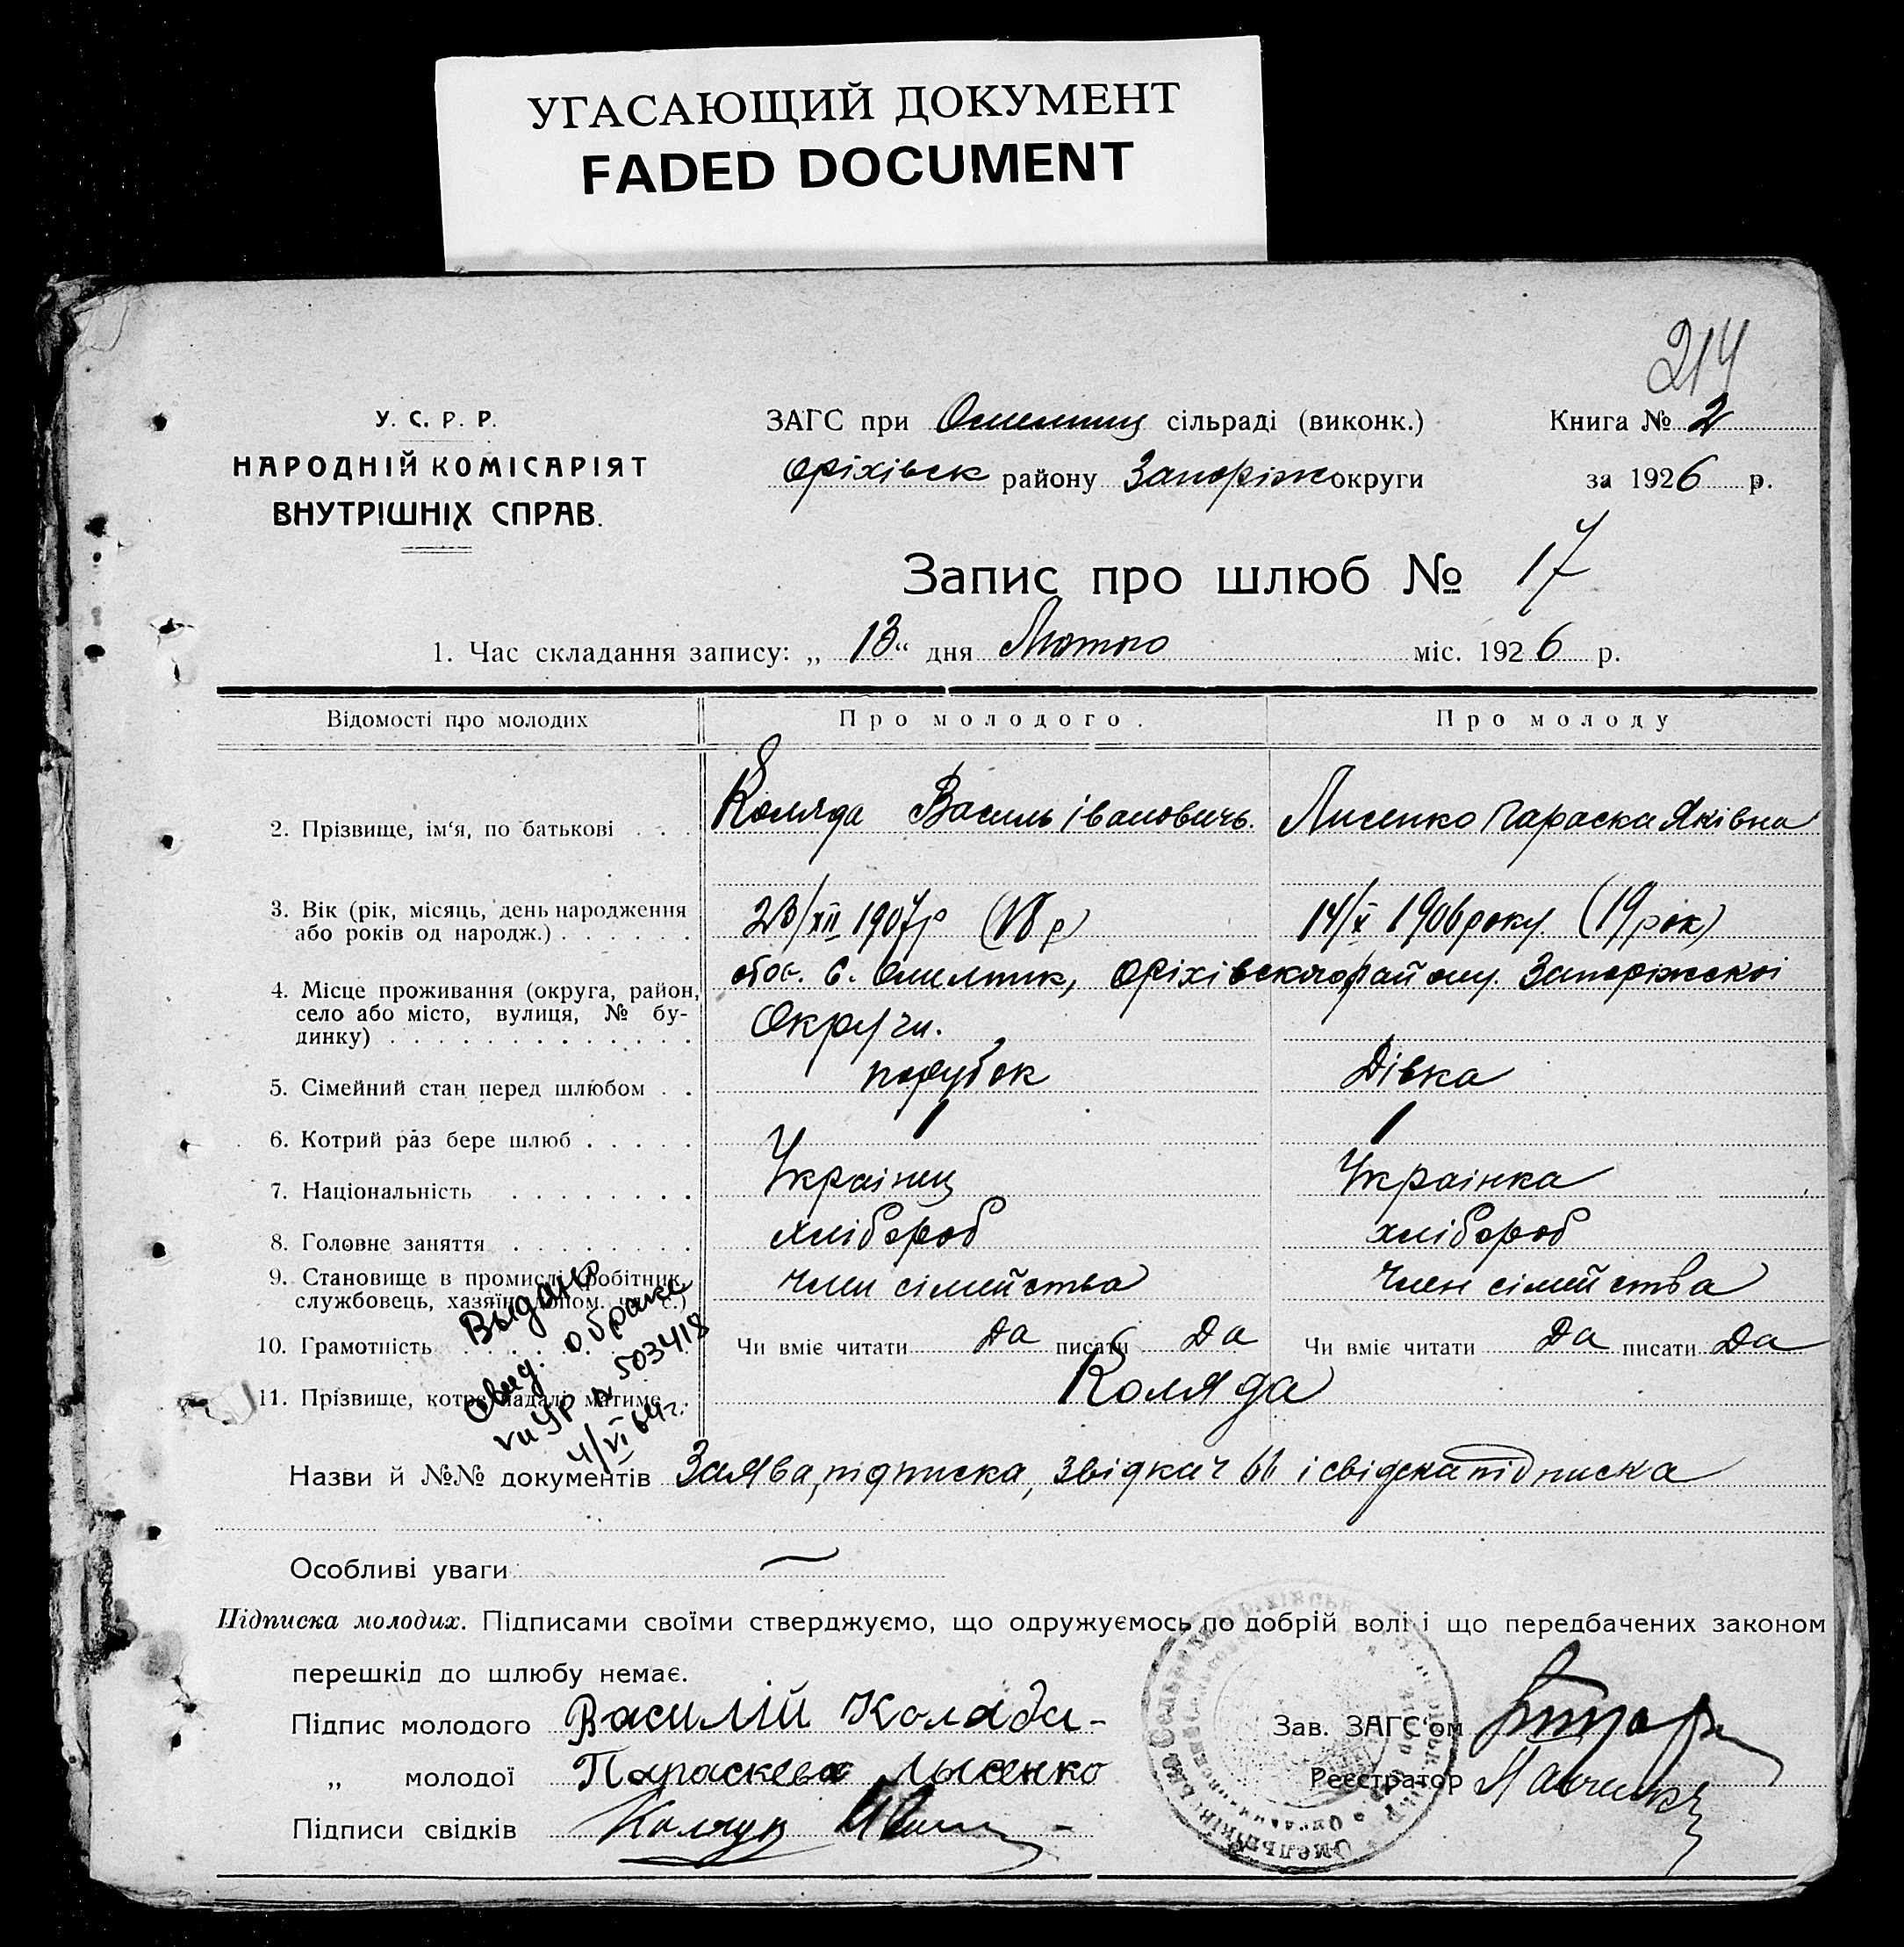 УГАСАЮЩИЙ ДОКУМЕНТ
FADED DOCUMENT
214
У. С. Р. Р.
НАРОДНІЙ КОМІСАРІЯТ
ВНУТРІШНІХ СПРАВ.
ЗАГС при сільраді (виконк.)
Оріхівськ району Запоріж округи
Книга № 2
за 1926 р.
Запис про шлюб № 17
1. Час складання запису: „ 13 “ дня Лютого міс. 1926 р.
Відомості про молодих Про молодого. Про молоду
2. Прізвище, ім‘я, по батькові . . . Коляда Василь Івановичь. Лисенко Параска Яківна
3. Вік (рік, місяць, день народження
або років од народж.) . . . . . . 23/XII 1907р (18 р) 14/X 1906 року. (19 рок)
4. Місце проживання (округа, район,
село або місто, вулиця, № бу-
динку) . . . . . . . . . . . . .
с. Омельник, Оріхівского району. Запоріжскоі
Округи.
5. Сімейний стан перед шлюбом . . парубок Дівка
6. Котрий раз бере шлюб . . . . . 1 1
7. Національність . . . . . . . . Украінец Украінка
8. Головне заняття . . . . . . . . хлібороб хлібороб
9. Становище в промислі (робітник,
службовець, хазяїн, допом. чл. с.) член сімейства член сімейства
10. Грамотність Чи вміє читати Да писати Да Чи вміє читати Да писати Да
11. Прізвище, котре надалі матиме . . Коляда
Выдано
свид. о браке
УР № 503418
4/VI 64г.
Назви й №№ документів Заява, підписка, звідки ч 66 і свідска підписка
Особливі уваги —
Підписка молодих. Підписами своїми стверджуємо, що одружуємось по добрій волі і що передбачених законом
перешкід до шлюбу немає.
Підпис молодого Василій Коляда
„ молодої Параскева Лысенко
Підписи свідків
Зав. ЗАГС‘ом
Реєстратор